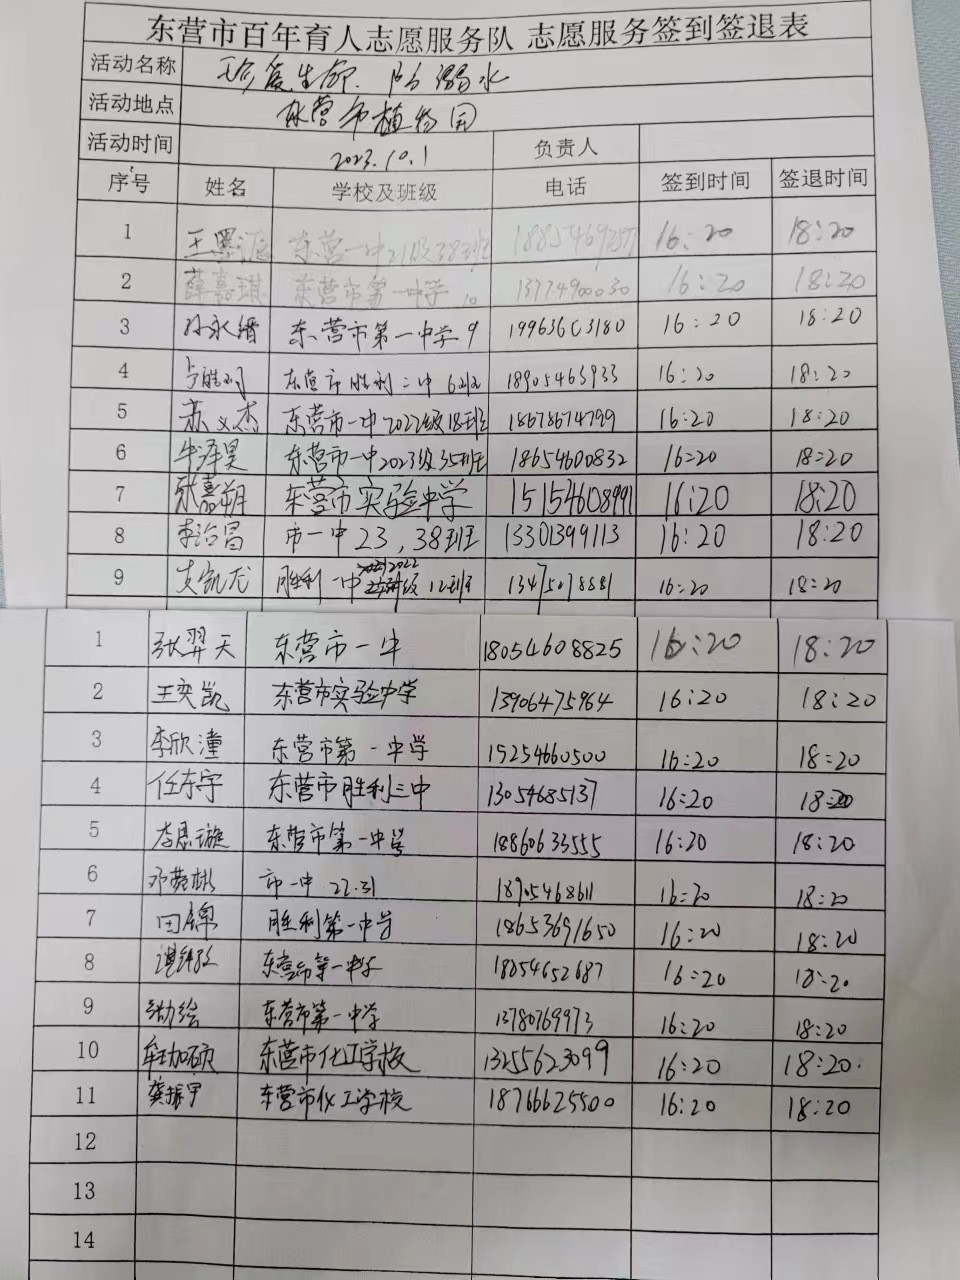 东营市百年育人志愿服务队 志愿服务签到签退表
活动名称 珍爱生命. 防溺水
活动地点 东营市植物园
活动时间 2023.10.1 负责人
序号 姓名 学校及班级 电话 签到时间 签退时间
1 王墨涵 东营一中21级38班 16:20 18:20
2 薛嘉琪 东营市第一中学 13774900030 16:20 18:20
3 孙永缙 东营市第一中学 9 19963603180 16:20 18:20
4 东营市胜利二中 18905463933 16:20 18:20
5 苏义杰 东营市一中2022级18班 18678674799 16:20 18:20
6 牛泽昊 东营市一中2023级35班 18654600832 16:20 18:20
7 张嘉朔 东营市实验中学 15154608991 16:20 18:20
8 李治昌 市一中23,38班 13301399113 16:20 18:20
9 支凯龙 胜利一中 2022级12班 13475078881 16:20 18:20
1 张羿天 东营市一中 18054608825 16:20 18:20
2 王奕凯 东营市实验中学 13906475964 16:20 18:20
3 李欣潼 东营市第一中学 15254660500 16:20 18:20
4 任东宇 东营市胜利三中 13054685137 16:20 18:20
5 李思璇 东营市第一中学 18860633555 16:20 18:20
6 邓 彬 市一中 22.31 18905468611 16:20 18:20
7 田锦 胜利第一中学 18653691650 16:20 18:20
8 东营市第一中学 18054652687 16:20 18:20
9 绘 东营市第一中学 13780769973 16:20 18:20
10 牟加硕 东营市化工学校 13255623099 16:20 18:20.
11 龚振宇 东营市化工学校 18766625500 16:20 18:20
12
13
14